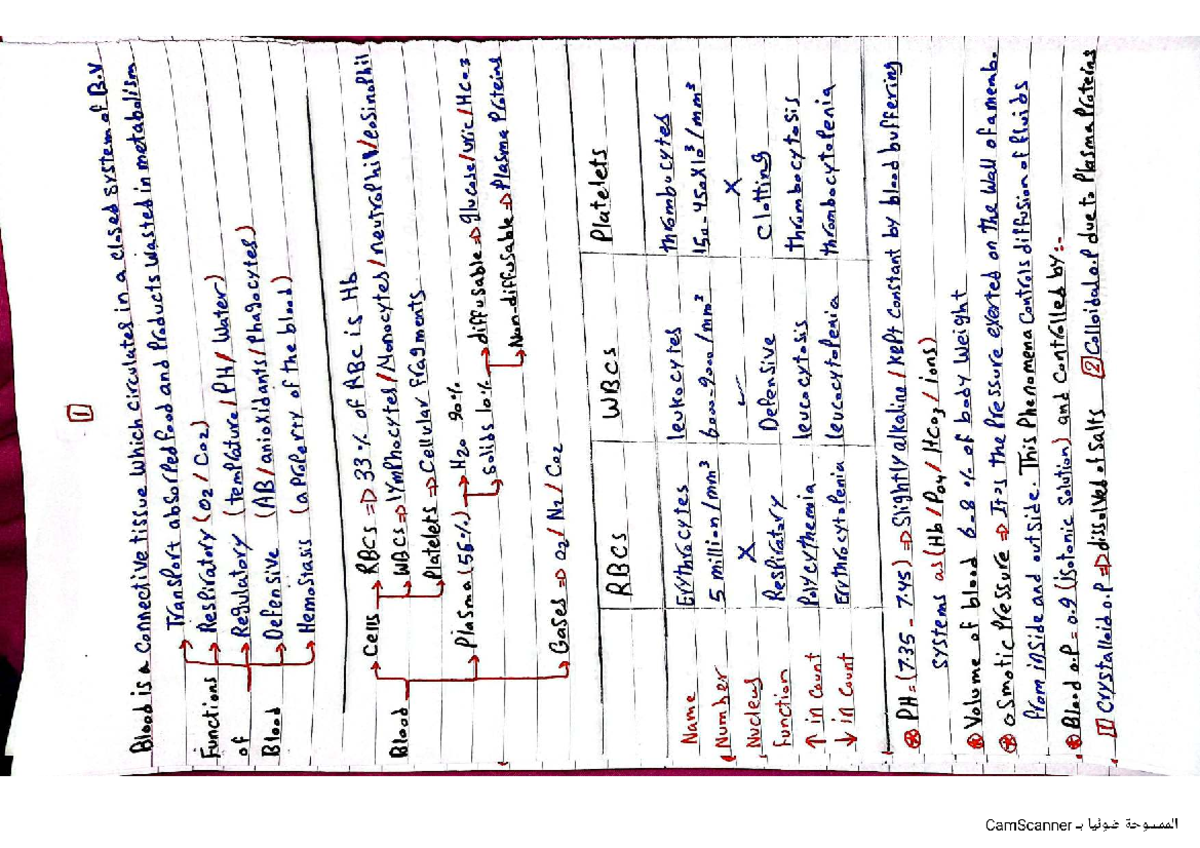 1
Blood is a Connective tissue which circulates in a closed system of B.V
Functions of Blood
Transport absorbed food and Products wasted in metabolism
Respiratory (O2 / CO2)
Regulatory (tempature / PH / Water)
Defenisive (AB / anioxidants / Phagocytes)
Hemostasis (a Property of the blood)
Blood
Cells
RBCs ⇒ 33 % of RBC is Hb
WBCs ⇒ lymphocytes / Monocytes / neutrophil / eosinophil
Platelets ⇒ Cellular fragments
Plasma (56 %)
H2O 90 %
Solids 10 %
diffusable ⇒ glucose / uric / HCO3
Non-diffusable ⇒ Plasma Proteins
Gases ⇒ O2 / N2 / CO2
RBCs WBCs Platelets
Name Erythrocytes leukocytes thrombocytes
Number 5 million / mm³ 6000-9000 / mm³ 150-450 X10³ / mm³
Nucleus X ✓ X
function Respiratory Defensive Clotting
↑ in Count Polycythemia leucocytosis thrombocytosis
↓ in Count Erythrocytopenia leucocytopenia thrombocytopenia
PH = (7.35 - 7.45) ⇒ Slightly alkaline / kept constant by blood buffering
systems as (Hb / PO4 / HCO3 / ions)
Volume of blood 6-8 % of body weight
Osmotic Pressure ⇒ It is the Pressure exerted on the Wall of a memb.
from inside and outside. This Phenomena Controls diffusion of fluids
Blood O.P = 0.9 (isotonic Solution) and Controlled by :-
1 Crystalloid O.P ⇒ dissolved salts 2 Colloidal O.P due to Plasma Proteins
الممسوحة ضوئيا بـ CamScanner